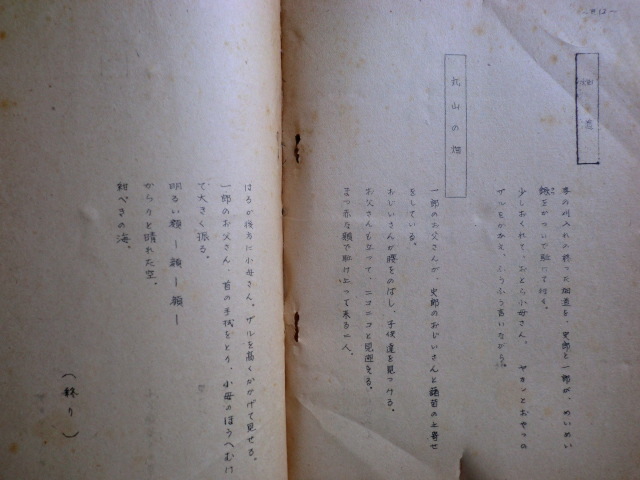 畑道
麦の刈入れの終った畑道を、史郎と一郎が、めいめい
鍬をかついで駈けて行く。
少しおくれて、おとら小母さん。　ヤカンとおやつの
ザルをかかえ、ふうふう言いながら。
丸山の畑
一郎のお父さんが、史郎のおじいさんと諸苗の土寄せ
をしている。
おじいさんが腰をのばし、子供達を見つける。
お父さんも立って、ニコニコと見迎える。
まっ赤な顔で駈け上って来る二人。
はるか後方に小母さん。ザルを高くかかげて見せる。
一郎のお父さん、首の手拭をとり、小母のほうへむけ
て大きく振る。
明るい顔ー顔ー顔ー
からりと晴れた空。
紺ぺきの海。
（終り）